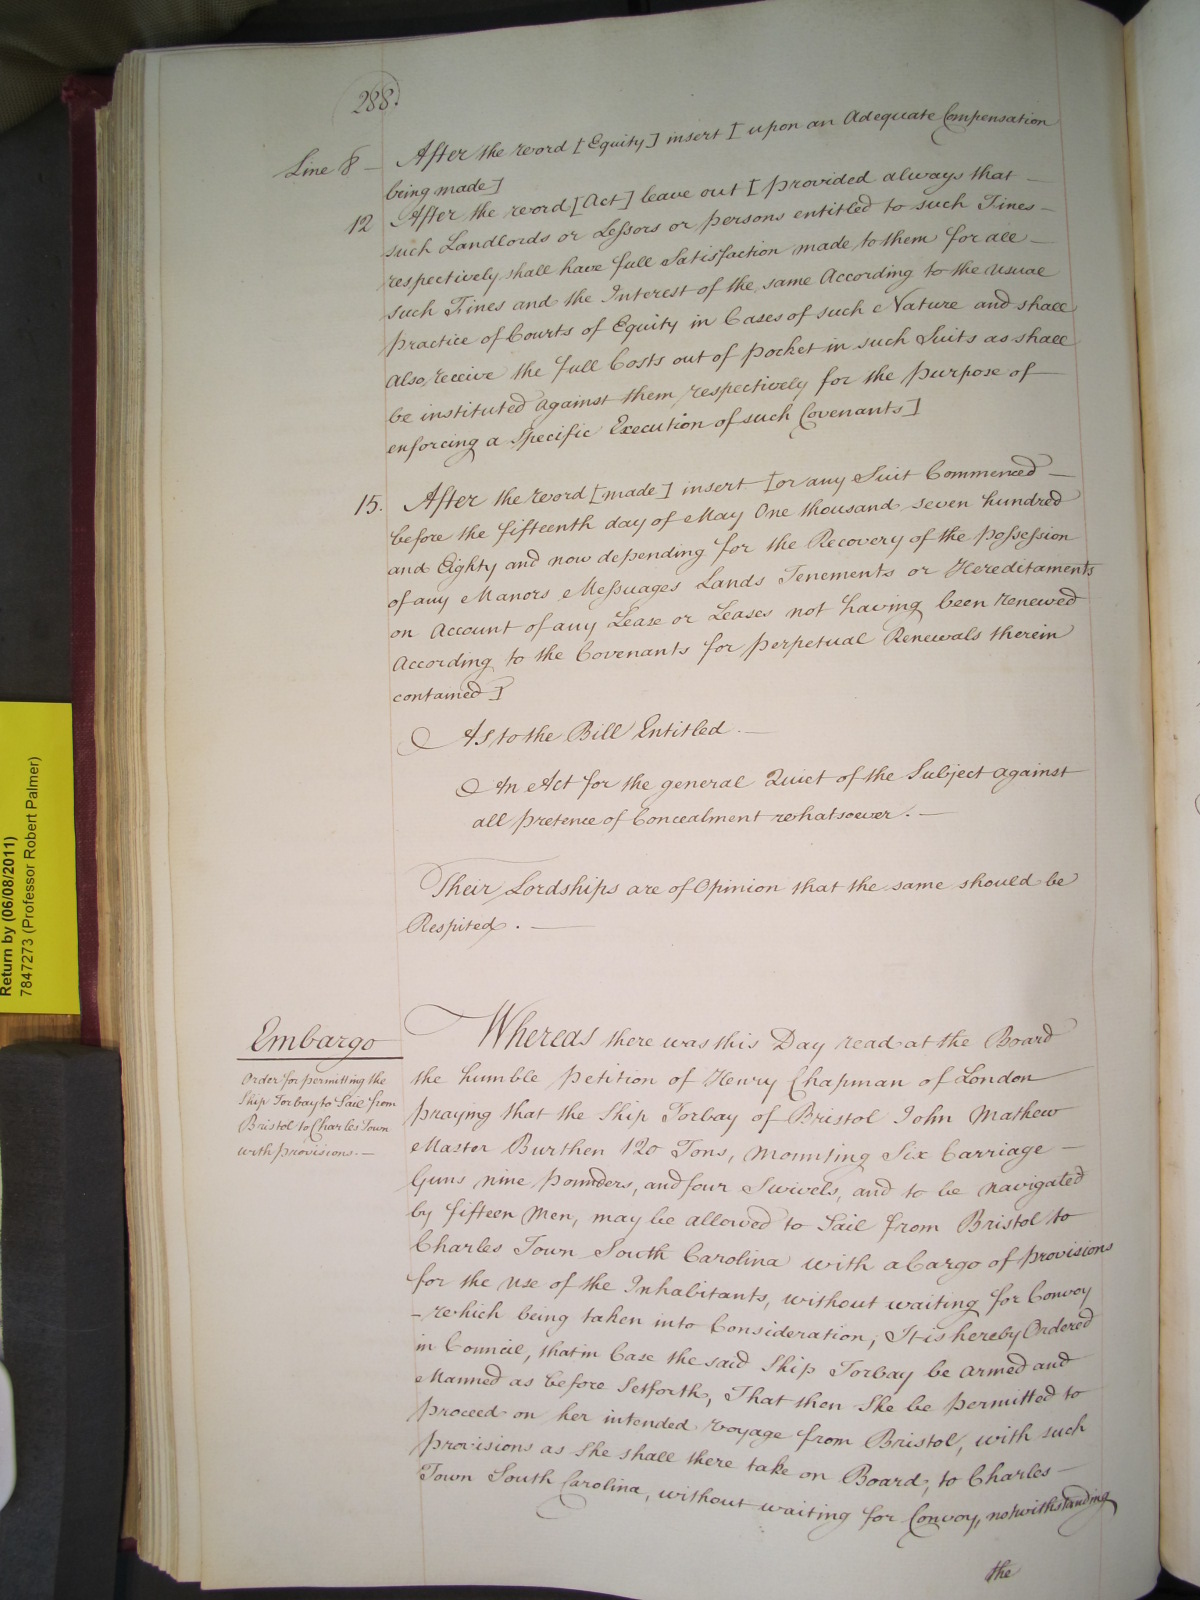 288.
Line 8 — After the word [Equity] insert [upon an Adequate Compensation
being made]
12 After the word [Act] leave out [provided always that —
such Landlords or Lessors or persons entitled to such Fines —
respectively shall have full Satisfaction made to them for all —
such Fines and the Interest of the same According to the usual
practice of Courts of Equity in Cases of such Nature and shall
also receive the full Costs out of pocket in such Suits as shall
be instituted against them respectively for the purpose of
enforcing a Specific Execution of such Covenants]
15. After the word [made] insert [or any Suit Commenced —
before the fifteenth day of May One thousand seven hundred
and Eighty and now depending for the Recovery of the possession
of any Manors Messuages Lands Tenements or Hereditaments
on Account of any Lease or Leases not having been renewed
According to the Covenants for perpetual Renewals therein
contained]
As to the Bill Entitled. —
An Act for the general Quiet of the Subject against
all pretence of Concealment whatsoever. —
Their Lordships are of Opinion that the same should be
Respited. —
Embargo
Order for permitting the
Ship Torbay to Sail from
Bristol to Charles Town
with provisions. —
Whereas there was this Day read at the Board
the humble Petition of Henry Chapman of London
praying that the Ship Torbay of Bristol John Mathew
Master Burthen 120 Tons, mounting Six Carriage —
Guns nine pounders, and four Swivels, and to be navigated
by fifteen Men, may be allowed to Sail from Bristol to
Charles Town South Carolina with a Cargo of provisions
for the use of the Inhabitants, without waiting for Convoy
– which being taken into Consideration, It is hereby Ordered
in Council, that in Case the said Ship Torbay be armed and
Manned as before Setforth, That then She be permitted to
proceed on her intended Voyage from Bristol, with such
provisions as She shall there take on Board, to Charles —
Town South Carolina, without waiting for Convoy, notwithstanding
the
Return by (06/08/2011)
7847273 (Professor Robert Palmer)